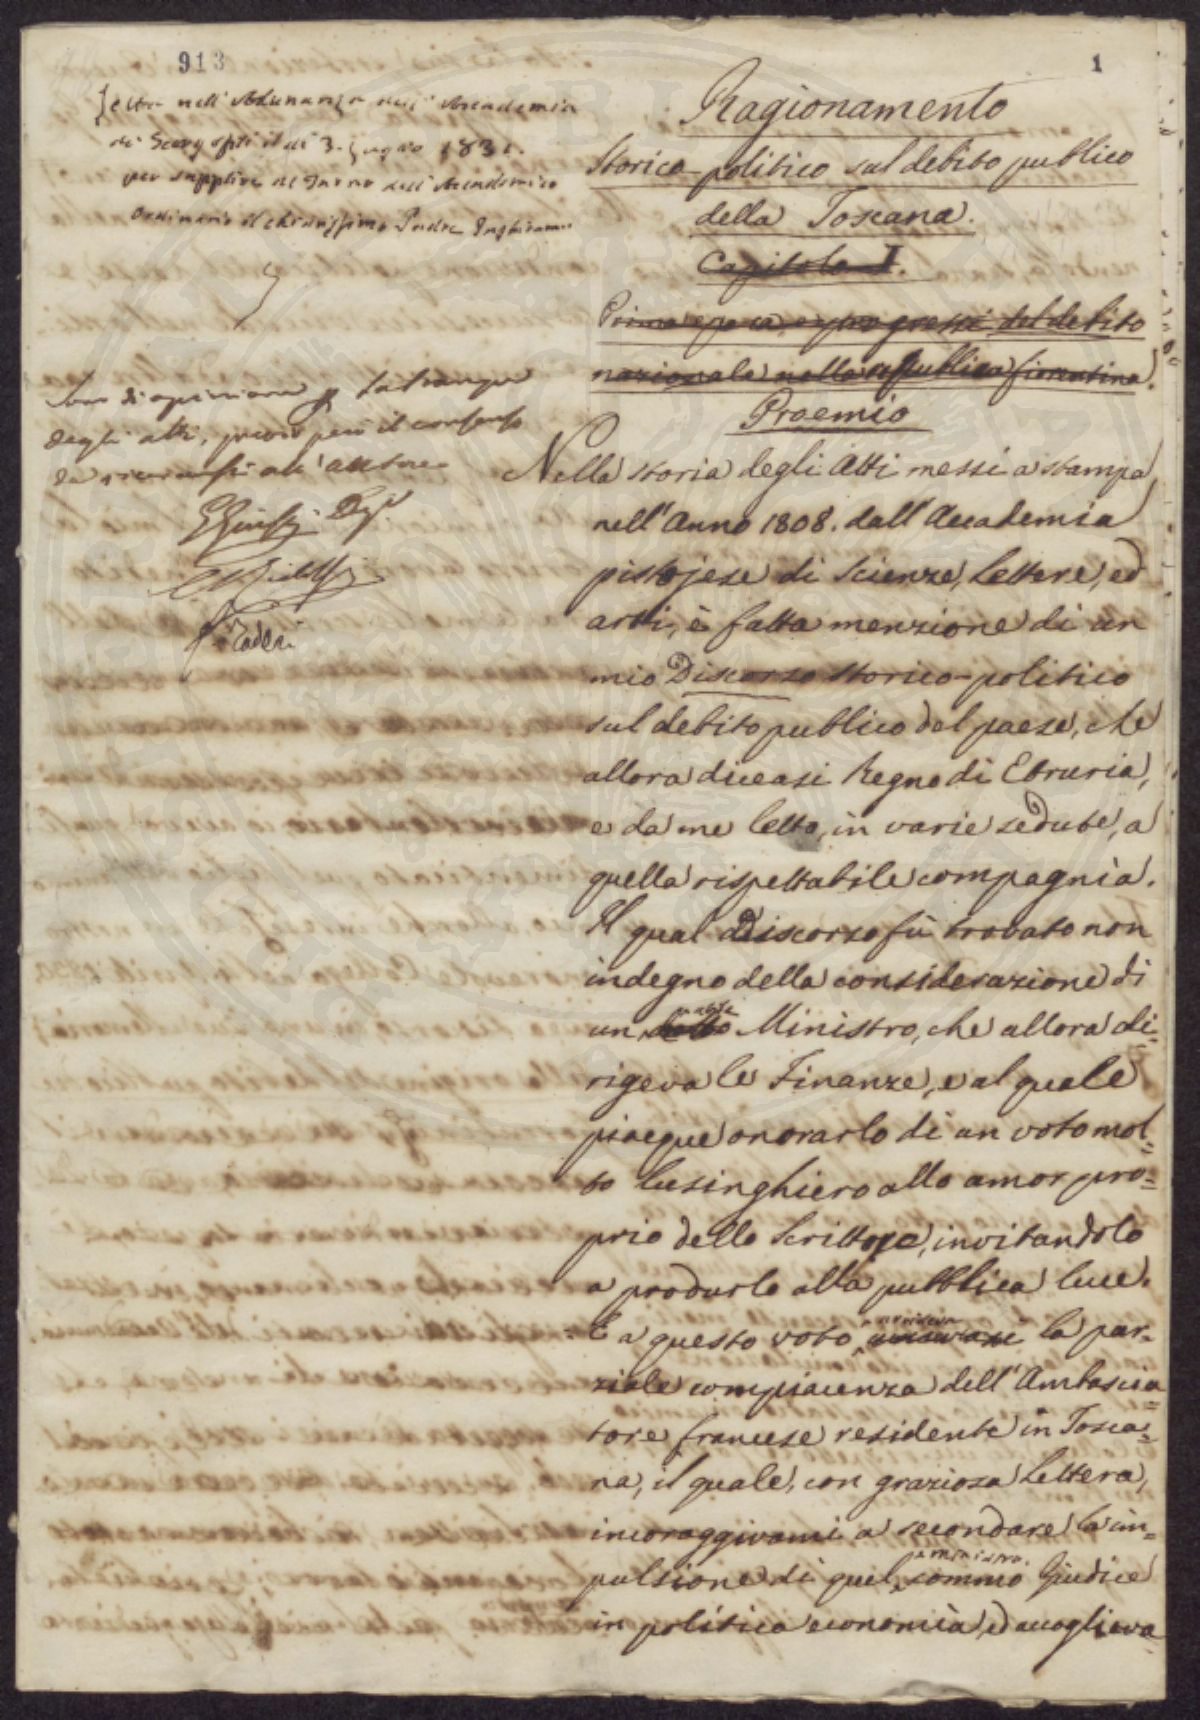 913
1
Letta nell'Adunanza dell'Accademia
dei Georgofili il dì 3. Giugno 183
per supplire al Turno dell'Accademico
Ordinario il chiarissimo Padre Inghirami
Sono di opinione p la stampa
degli atti, previo però il consenso
da ricercarsi all'autore
Ragionamento
Storico-politico sul debito publico
della Toscana.
Capitolo I.
Prima epoca, e progressi del debito
nazionale nella republica fiorentina.
Proemio
Nella storia degli Atti messi a stampa
nell'Anno 1808. dall'Accademia
pistojese di Scienze, Lettere, ed
arti, è fatta menzione di un
mio Discorso storico-politico
sul debito publico del paese, che
allora diceasi Regno di Etruria,
e da me letto, in varie sedute, a
quella rispettabile compagnia.
Il qual discorso fù trovato non
indegno della considerazione di
un Ministro, che allora di=
rigeva le Finanze, e al quale
piacque onorarlo di un voto mol=
to lusinghiero allo amor pro=
prio dello Scrittore, invitandolo
a produrlo alla pubblica luce.
E a questo voto la par=
ziale compiacenza dell'Ambascia=
tore francese residente in Tosca=
na, il quale, con graziosa Lettera,
incoraggivami a secondare la im=
pulsione di quel sommo Giudice
in politica economia, ed accoglieva